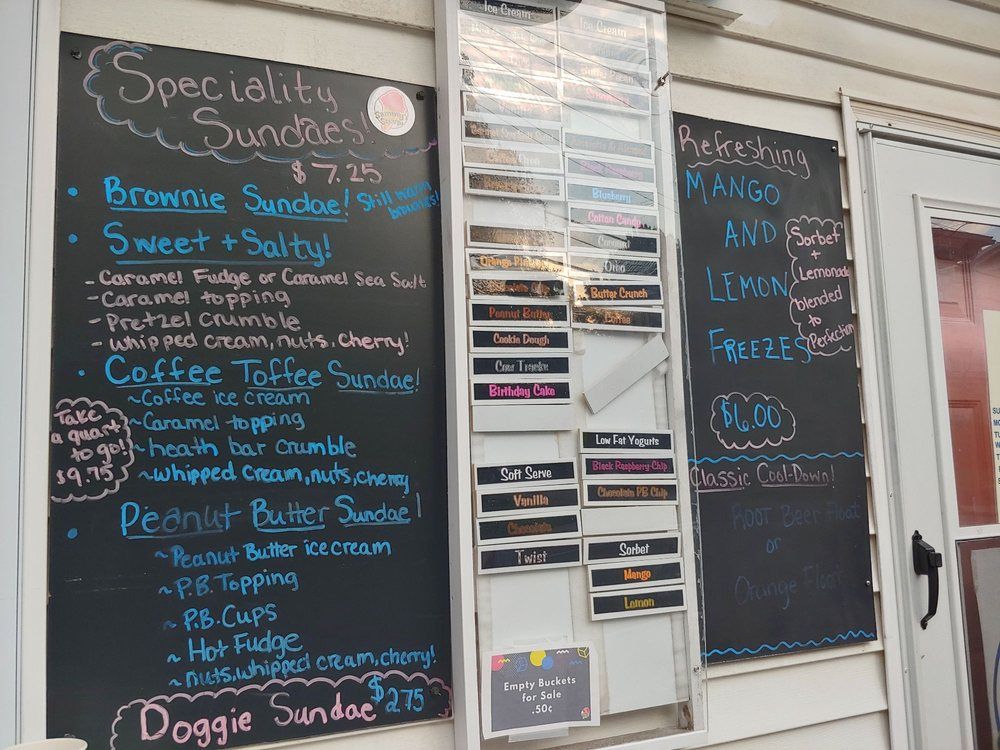 Speciality
Sundaes!
$7.25
Brownie Sundae! Still warm
brownies!
Sweet + Salty!
- Caramel Fudge or Caramel Sea Salt
- Caramel topping
- Pretzel Crumble
- whipped cream, nuts, cherry!
Coffee Toffee Sundae!
~ Coffee ice cream
~ Caramel topping
~ heath bar crumble
~ whipped cream, nuts, cherry
Take
a quart
to go!
$9.75
Peanut Butter Sundae!
~ Peanut Butter ice cream
~ P.B. Topping
~ P.B. Cups
~ Hot Fudge
~ nuts, whipped cream, cherry!
Doggie Sundae $2.75
Ice Cream
Peanut Butter
Cookie Dough
Cow Tracks
Birthday Cake
Soft Serve
Vanilla
Chocolate
Twist
Ice Cream
Blueberry
Cotton Candy
Coconut
Oreo
Butter Crunch
Coffee
Low Fat Yogurts
Black Raspberry Chip
Chocolate PB Chip
Sorbet
Mango
Lemon
Empty Buckets
for Sale
.50¢
Refreshing
MANGO
AND
LEMON
FREEZES
Sorbet
+
Lemonade
blended
to
Perfection
$6.00
Classic Cool-Down!
Root Beer Float
or
Orange Float